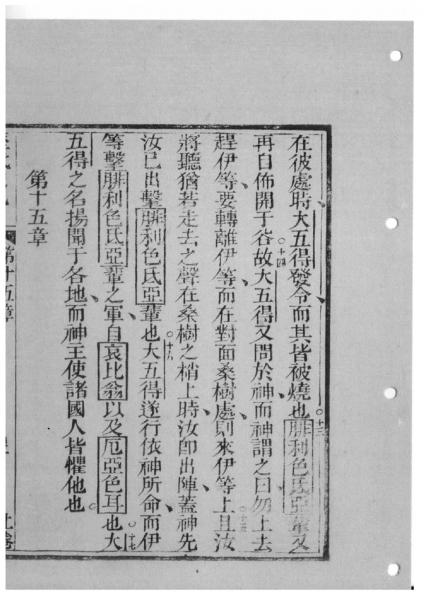 在彼處時大五得發令而其皆被燒也十三腓利色氏亞輩又
再自佈開于谷十四故大五得又問於神而神謂之曰勿上去
趕伊等要轉離伊等而在對面桑樹處則來伊等上十五且汝
將聽猶若走去之聲在桑樹之梢上時汝即出陣蓋神先
汝已出擊腓利色氏亞輩也十六大五得遂行依神所命而伊
等擊腓利色氏亞輩之軍自哀比翁以及厄亞色耳也十七大
五得之名揚聞于各地而神主使諸國人皆懼他也
第十五章
第十五章